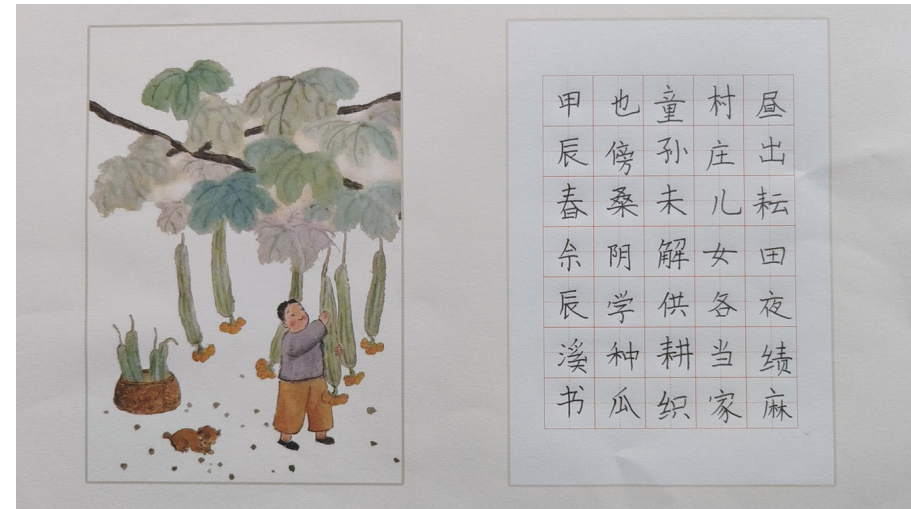 昼出耘田夜绩麻
村庄儿女各当家
童孙未解供耕织
也傍桑阴学种瓜
甲辰春辰溪书